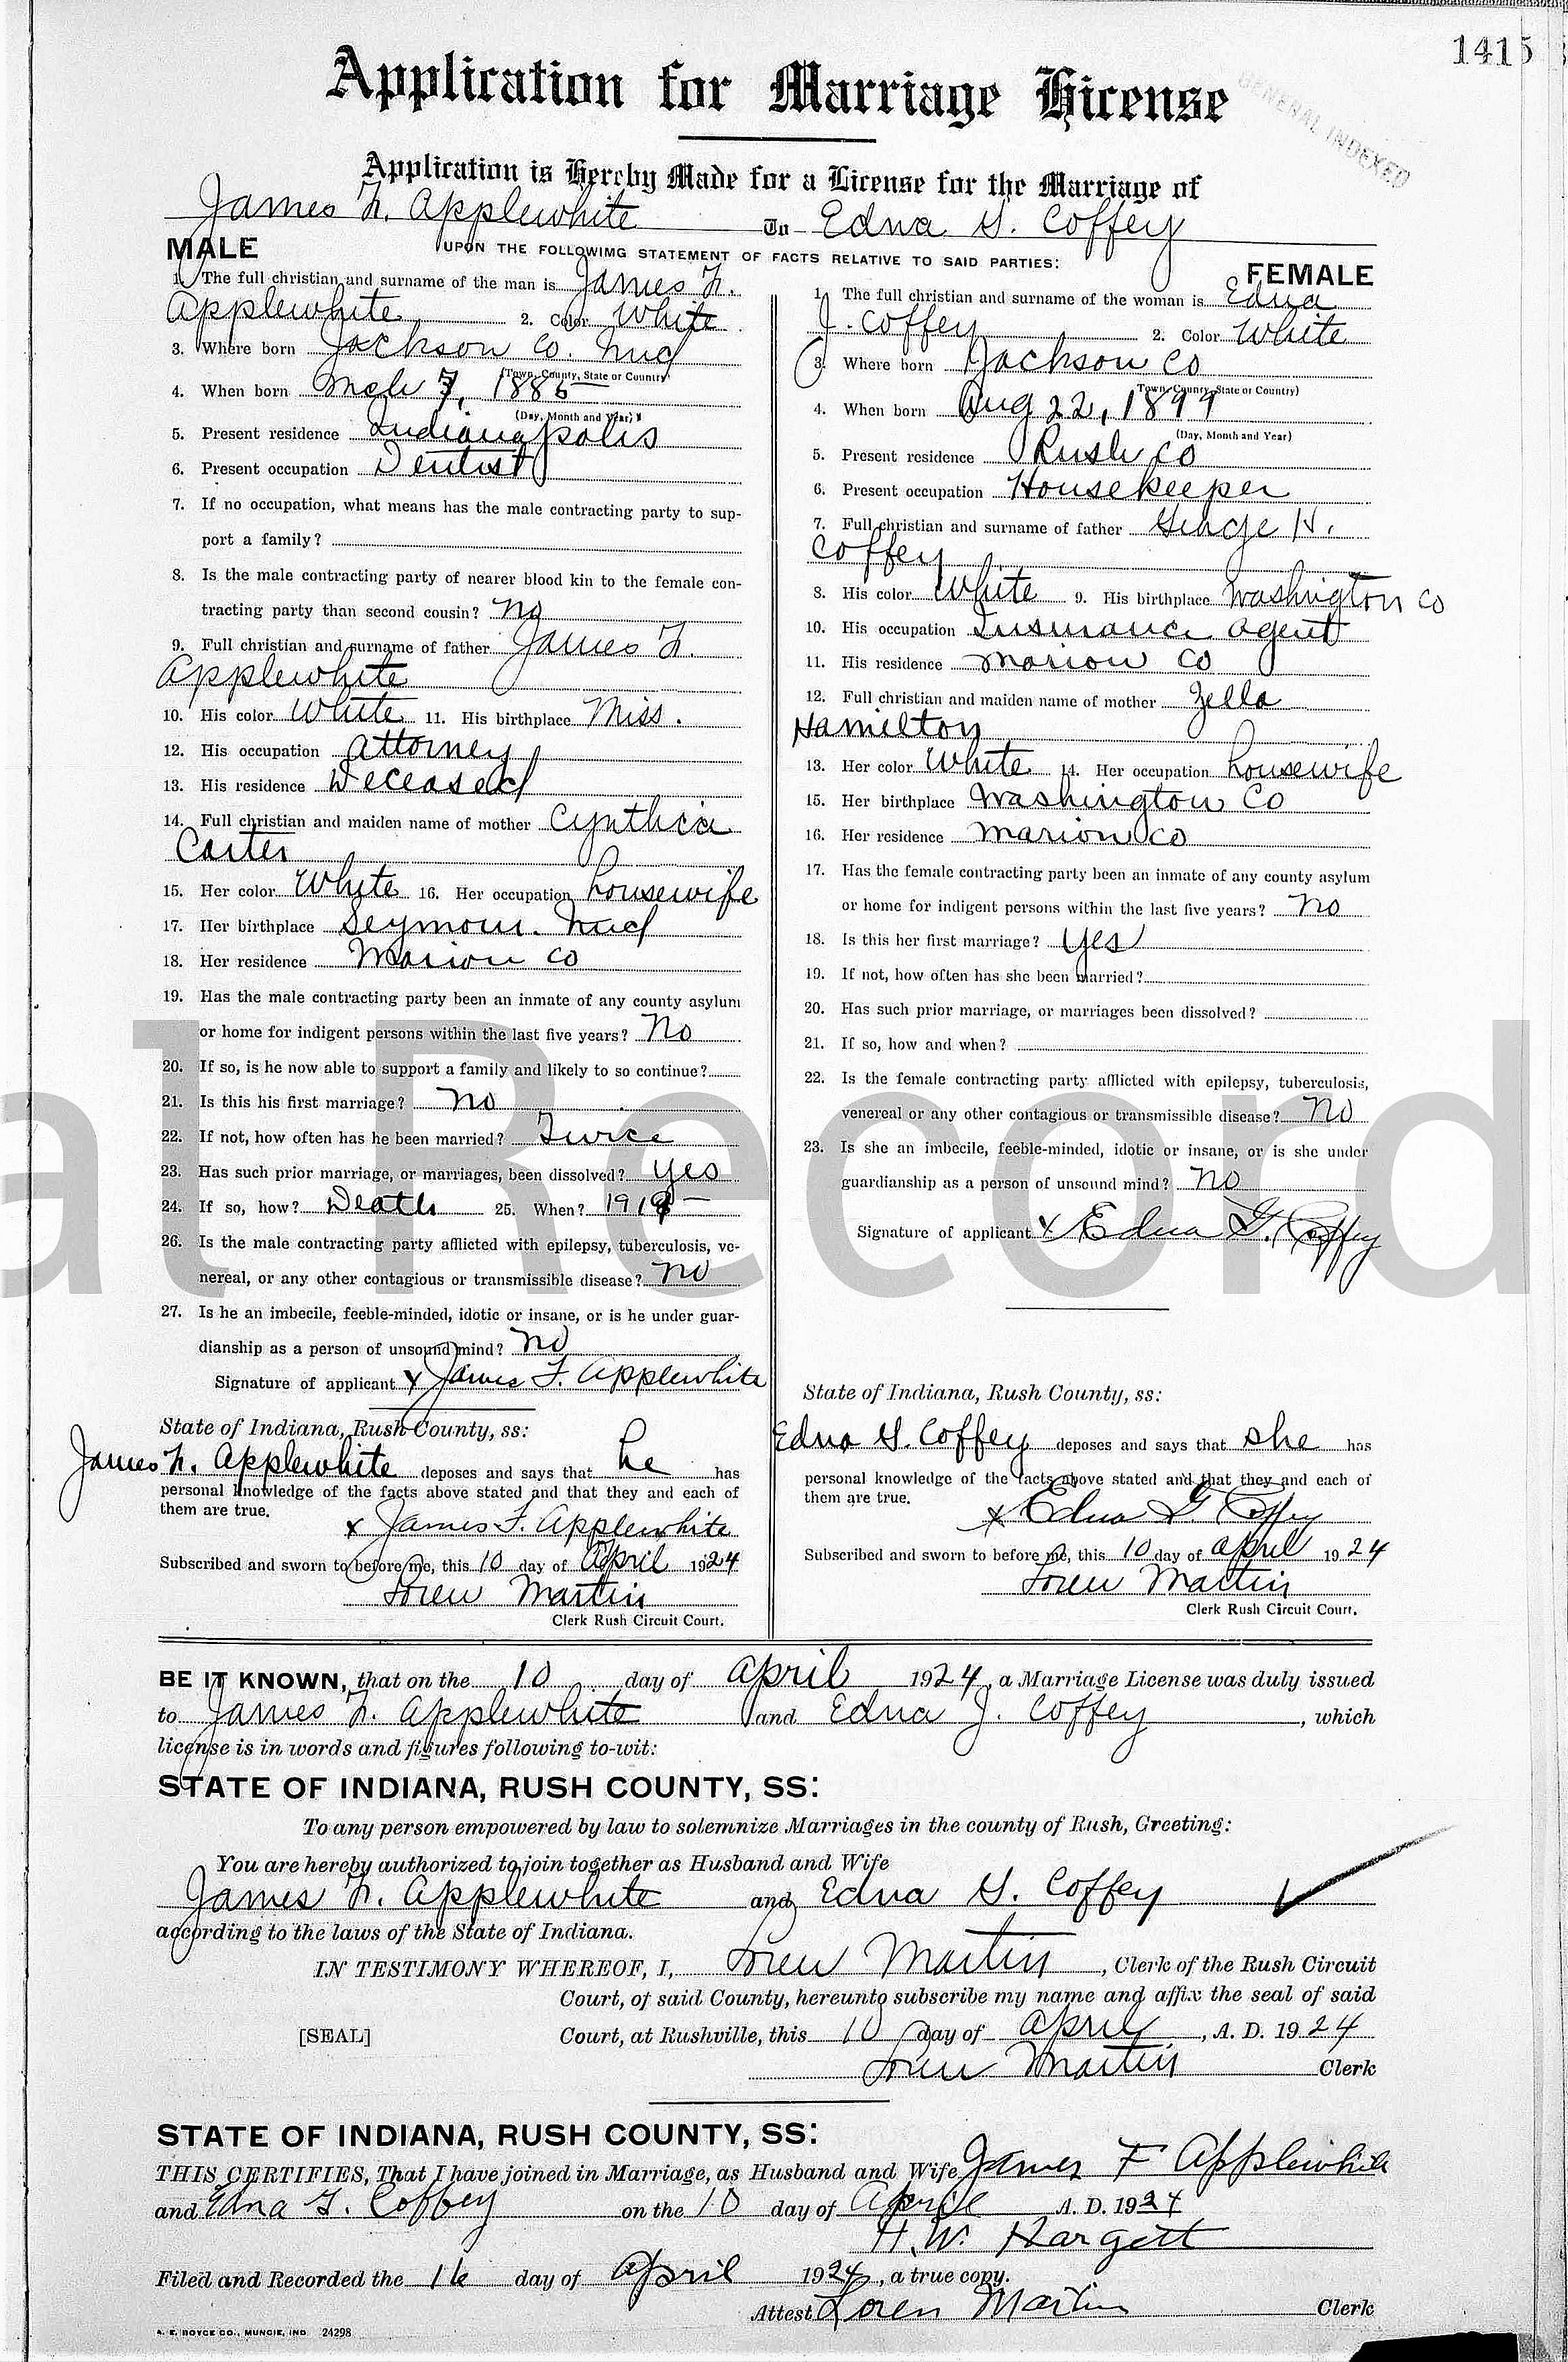 1415
GENERAL INDEXED
Application for Marriage License
Application is Hereby Made for a License for the Marriage of
James F. Applewhite To Edna G. Coffey
UPON THE FOLLOWIMG STATEMENT OF FACTS RELATIVE TO SAID PARTIES:
MALE
1. The full christian and surname of the man is James F.
Applewhite 2. Color White
3. Where born Jackson Co. Ind
(Town, County, State or Country)
4. When born Mch 7, 1886
(Day, Month and Year)
5. Present residence Indianapolis
6. Present occupation Dentist
7. If no occupation, what means has the male contracting party to sup-
port a family?
8. Is the male contracting party of nearer blood kin to the female con-
tracting party than second cousin? no
9. Full christian and surname of father James F.
Applewhite
10. His color White 11. His birthplace Miss.
12. His occupation Attorney
13. His residence Deceased
14. Full christian and maiden name of mother Cynthia
Carter
15. Her color White 16. Her occupation housewife
17. Her birthplace Seymour. Ind
18. Her residence Marion Co
19. Has the male contracting party been an inmate of any county asylum
or home for indigent persons within the last five years? No
20. If so, is he now able to support a family and likely to so continue?
21. Is this his first marriage? no
22. If not, how often has he been married? Twice
23. Has such prior marriage, or marriages, been dissolved? yes
24. If so, how? Death 25. When? 1918
26. Is the male contracting party afflicted with epilepsy, tuberculosis, ve-
nereal, or any other contagious or transmissible disease? no
27. Is he an imbecile, feeble-minded, idotic or insane, or is he under guar-
dianship as a person of unsound mind? no
Signature of applicant x James F. Applewhite
State of Indiana, Rush County, ss:
James F. Applewhite deposes and says that he has
personal knowledge of the facts above stated and that they and each of
them are true.
x James F. Applewhite
Subscribed and sworn to before me, this 10 day of April 1924
Loren Martin
Clerk Rush Circuit Court.
FEMALE
1. The full christian and surname of the woman is Edna
G. Coffey 2. Color White
3. Where born Jackson Co
Town, County, State or Country)
4. When born Aug 22, 1899
(Day, Month and Year)
5. Present residence Rush Co
6. Present occupation Housekeeper
7. Full christian and surname of father George H.
Coffey
8. His color White 9. His birthplace Washington Co
10. His occupation Insurance Agent
11. His residence Marion Co
12. Full christian and maiden name of mother Zella
Hamilton
13. Her color White 14. Her occupation housewife
15. Her birthplace Washington Co
16. Her residence Marion Co
17. Has the female contracting party been an inmate of any county asylum
or home for indigent persons within the last five years? no
18. Is this her first marriage? yes
19. If not, how often has she been married?
20. Has such prior marriage, or marriages been dissolved?
21. If so, how and when?
22. Is the female contracting party afflicted with epilepsy, tuberculosis,
venereal or any other contagious or transmissible disease? no
23. Is she an imbecile, feeble-minded, idotic or insane, or is she under
guardianship as a person of unsound mind? no
Signature of applicant x Edna G. Coffey
State of Indiana, Rush County, ss:
Edna G. Coffey deposes and says that she has
personal knowledge of the facts above stated and that they and each of
them are true.
x Edna G. Coffey
Subscribed and sworn to before me, this 10 day of April 1924
Loren Martin
Clerk Rush Circuit Court.
al Record
BE IT KNOWN, that on the 10 day of April 1924, a Marriage License was duly issued
to James F. Applewhite and Edna G. Coffey, which
license is in words and figures following to-wit:
STATE OF INDIANA, RUSH COUNTY, SS:
To any person empowered by law to solemnize Marriages in the county of Rush, Greeting:
You are hereby authorized to join together as Husband and Wife
James F. Applewhite and Edna G. Coffey
according to the laws of the State of Indiana.
IN TESTIMONY WHEREOF, I, Loren Martin, Clerk of the Rush Circuit
Court, of said County, hereunto subscribe my name and affix the seal of said
[SEAL] Court, at Rushville, this 10 day of April, A. D. 1924
Loren Martin Clerk
STATE OF INDIANA, RUSH COUNTY, SS:
THIS CERTIFIES, That I have joined in Marriage, as Husband and Wife James F Applewhite
and Edna G. Coffey on the 10 day of April A. D. 1924
H. W. Hargett
Filed and Recorded the 16 day of April 1924, a true copy.
Attest Loren Martin Clerk
A. E. BOYCE CO., MUNCIE, IND 24298